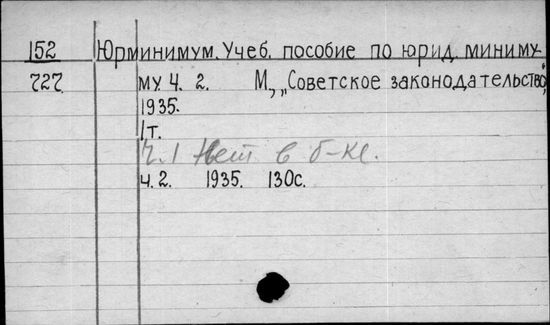 152 Юрминимум. Учеб. пособие по юрид. миниму-
727 му. Ч. 2. М., „Советское законодательство",
1935.
1т.
Ч. 1 Нет в б-ке.
Ч. 2. 1935. 130с.